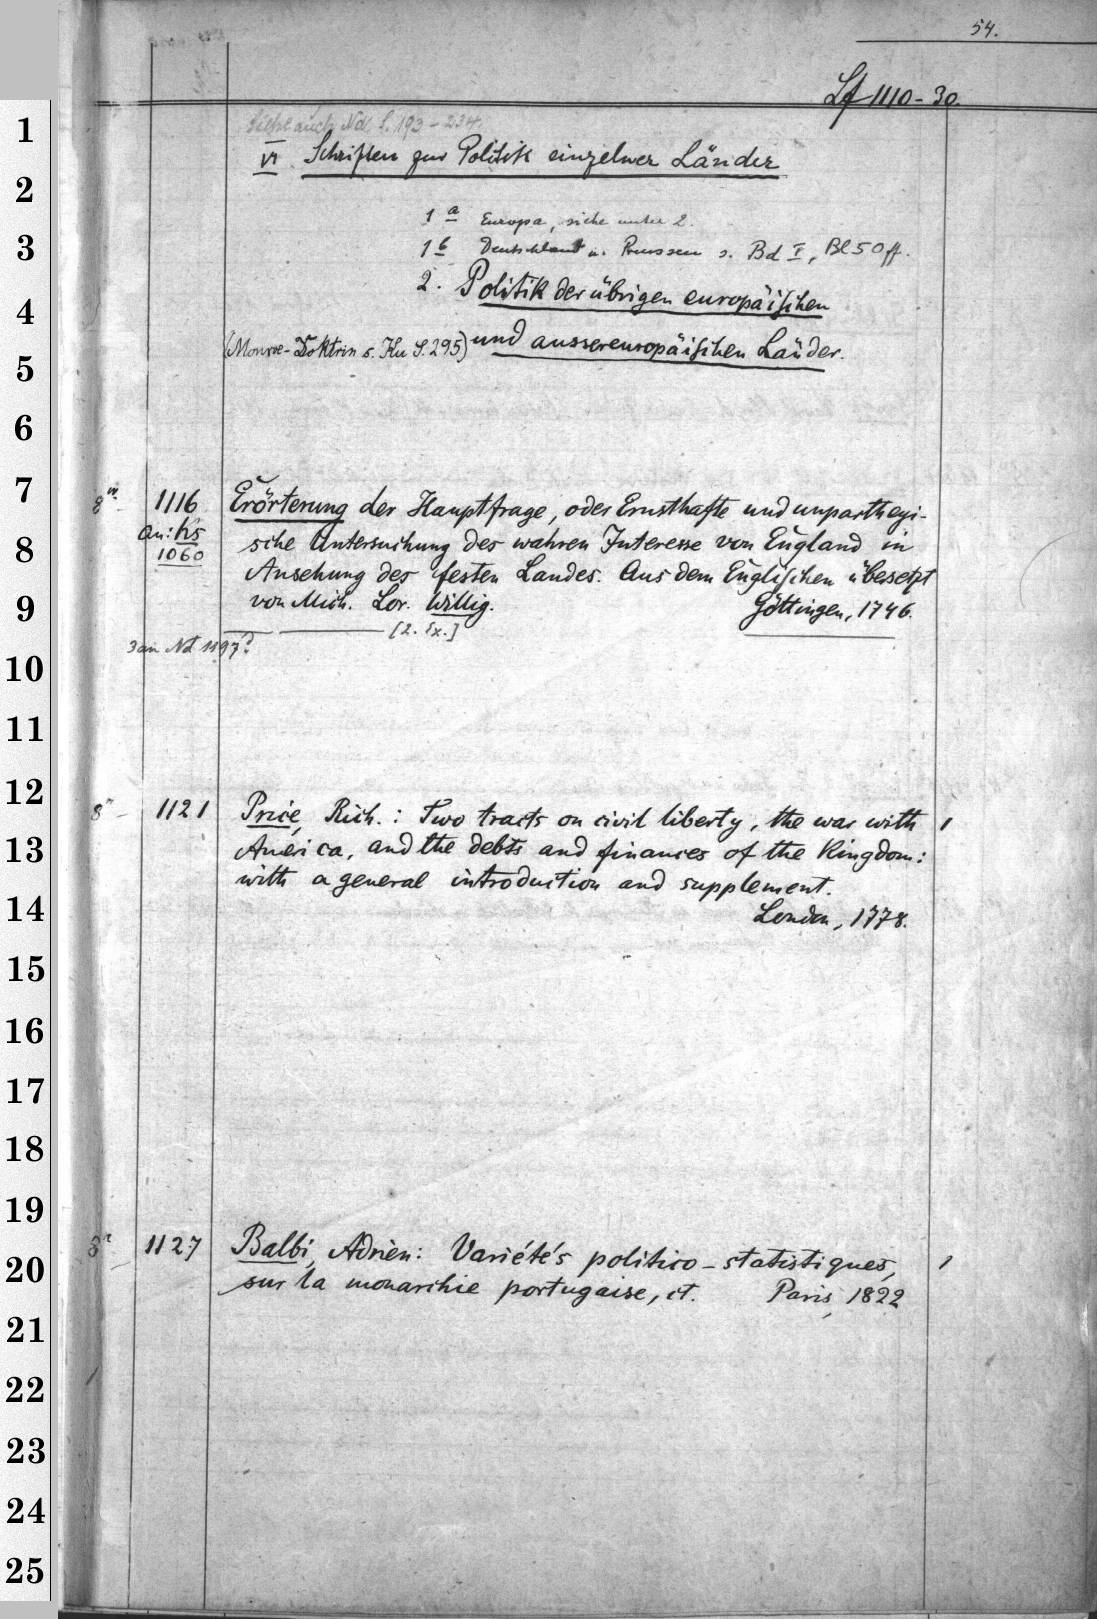 54.
Lf 1110-30.
1
Siehe auch Nd S. 193-234.
VI. Schriften zur Politik einzelner Länder
2
1 a Europa, siehe unter 2.
3
1 b Deutschland u. Preussen s. Bd I, Bl 50 ff.
2. Politik der übrigen europäischen
4
(Monroe-Doktrin s. Ku S. 295) und aussereuropäischen Länder.
5
6
7
8° 1116 Erörterung der Hauptfrage, oder Ernsthafte und unpartheyi-
8
an: Ks sche Untersuchung des wahren Interesse von England in
1060 Ansehung des festen Landes. Aus dem Englischen übersetzt
9
von Mich. Lor. Willig. Göttingen, 1746.
[2. Ex.]
3 an Nd 1197?
10
11
12
8° 1121 Price, Rich.: Two tracts on civil liberty, the war with 1
13
América, and the debts and finances of the Kingdom:
with a general introduction and supplement.
14
London, 1778.
15
16
17
18
19
8° 1127 Balbi, Adrien: Variétés politico-statistiques, 1
20
sur la monarchie portugaise, et. Paris, 1822
21
22
23
24
25